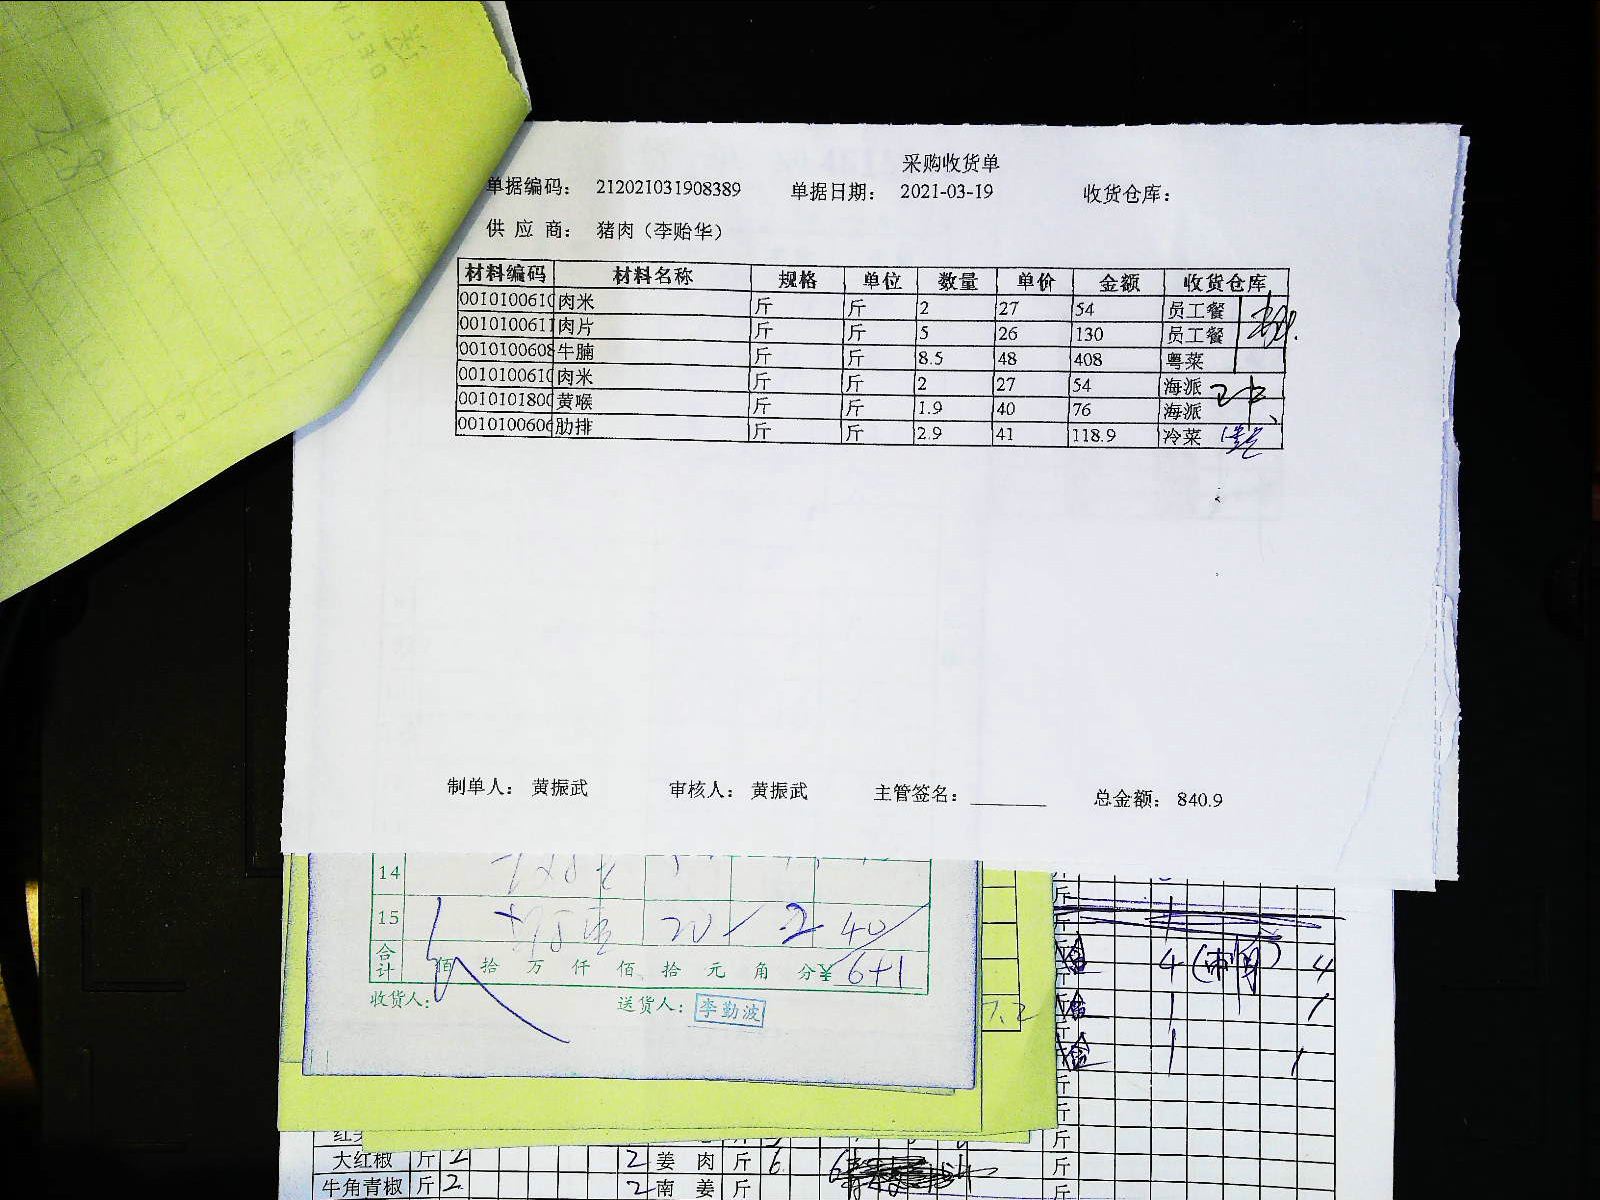 采购收货单
单据编码： 212021031908389 单据日期： 2021-03-19 收货仓库：
供 应 商： 猪肉（李贻华）
材料编码 材料名称 规格 单位 数量 单价 金额 收货仓库
001010061 肉米 斤 斤 2 27 54 员工餐
0010100611 肉片 斤 斤 5 26 130 员工餐
0010100608 牛腩 斤 斤 8.5 48 408 粤菜
001010061 肉米 斤 斤 2 27 54 海派
001010180 黄喉 斤 斤 1.9 40 76 海派
0010100606 肋排 斤 斤 2.9 41 118.9 冷菜
制单人： 黄振武 审核人： 黄振武 主管签名： 总金额： 840.9
14
15 20 2 40
合计 佰 拾 万 仟 佰 拾 元 角 分 ¥
收货人： 送货人： 李勤波
7.2
斤
斤
4 4
1 1
1 1
斤
斤
斤
大红椒 斤 2 2 姜 肉 斤 6 6 斤
牛角青椒 斤 2 2 南 姜 斤 斤